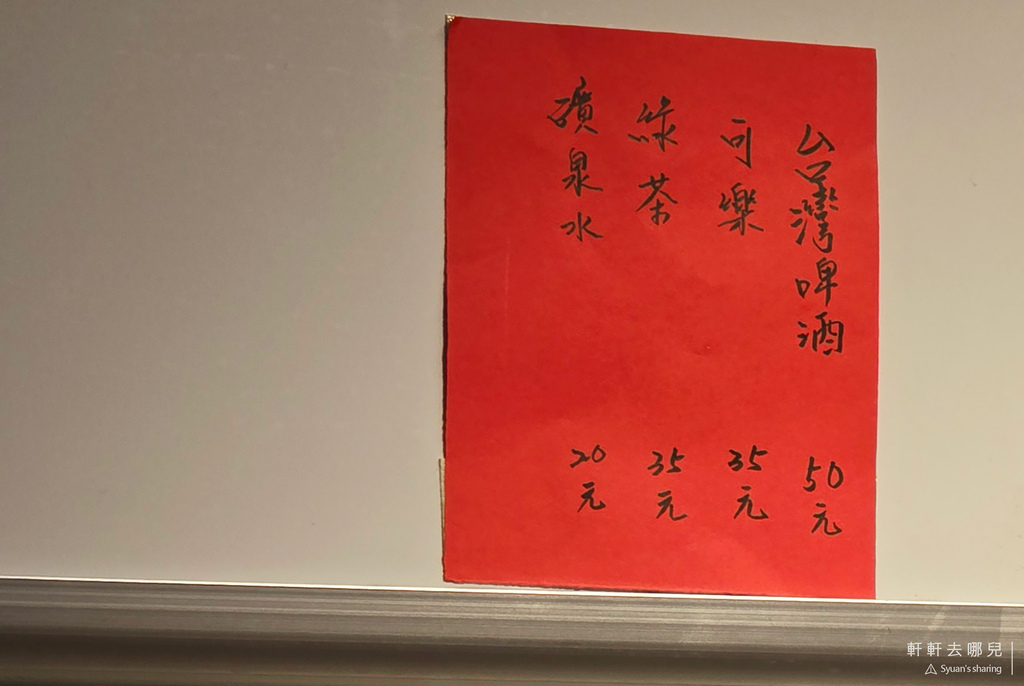 台灣啤酒 50元
可樂 35元
綠茶 35元
礦泉水 20元
軒軒去哪兒
Syuan's sharing